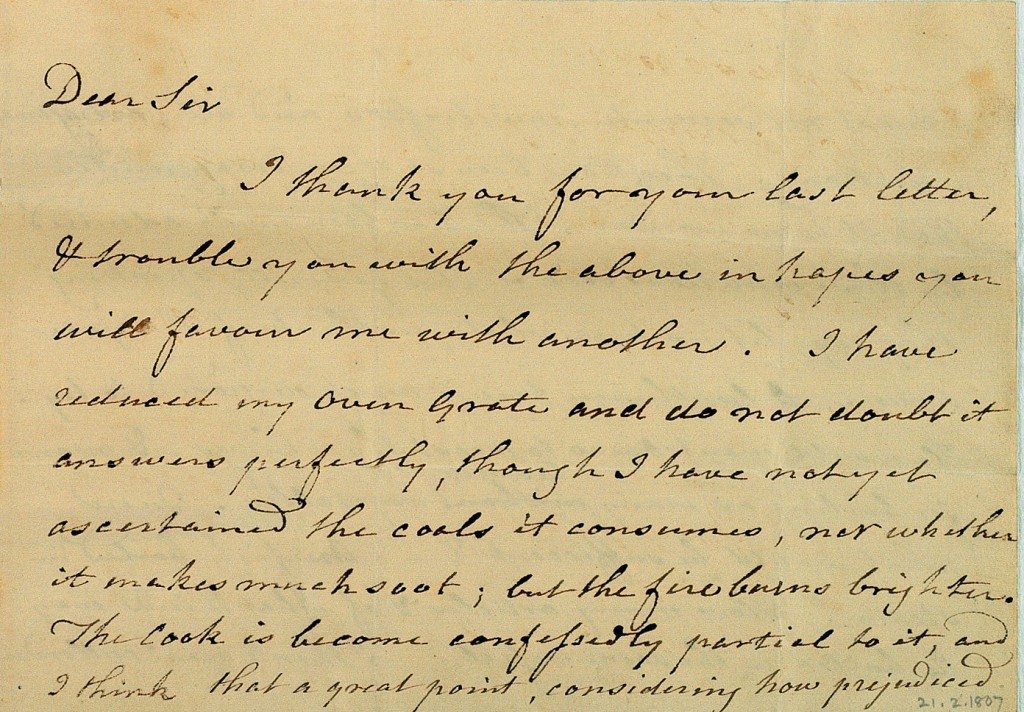 Dear Sir
I thank you for your last letter,
& trouble you with the above in hopes you
will favour me with another. I have
reduced my Oven Grate and do not doubt it
answers perfectly, though I have not yet
ascertained the coals it consumes, nor whether
it makes much soot; but the fire burns brighter.
The Cook is become confeſsedly partial to it, and
I think that a great point, considering how prejudiced
21.2.1807